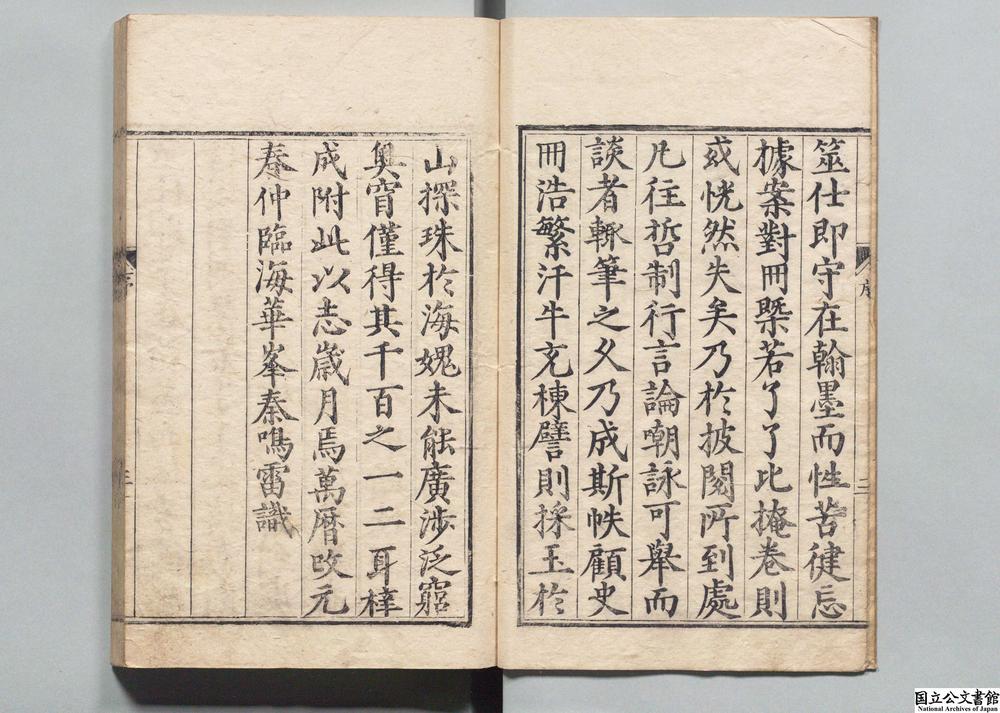 筮仕即守在翰墨而性苦健忘
據案對冊槩若了了比掩卷則
或恍然失矣乃於披閱所到處
凡往哲制行言論嘲詠可舉而
談者輙筆之久乃成斯帙顧史
冊浩繁汗牛充棟譬則採玉於
山探珠於海媿未能廣涉泛窮
奥窅僅得其千百之一二耳梓
成附此以志歲月焉萬曆改元
春仲臨海華峯秦鳴雷識
序
二
序
三
国立公文書館
National Archives of Japan